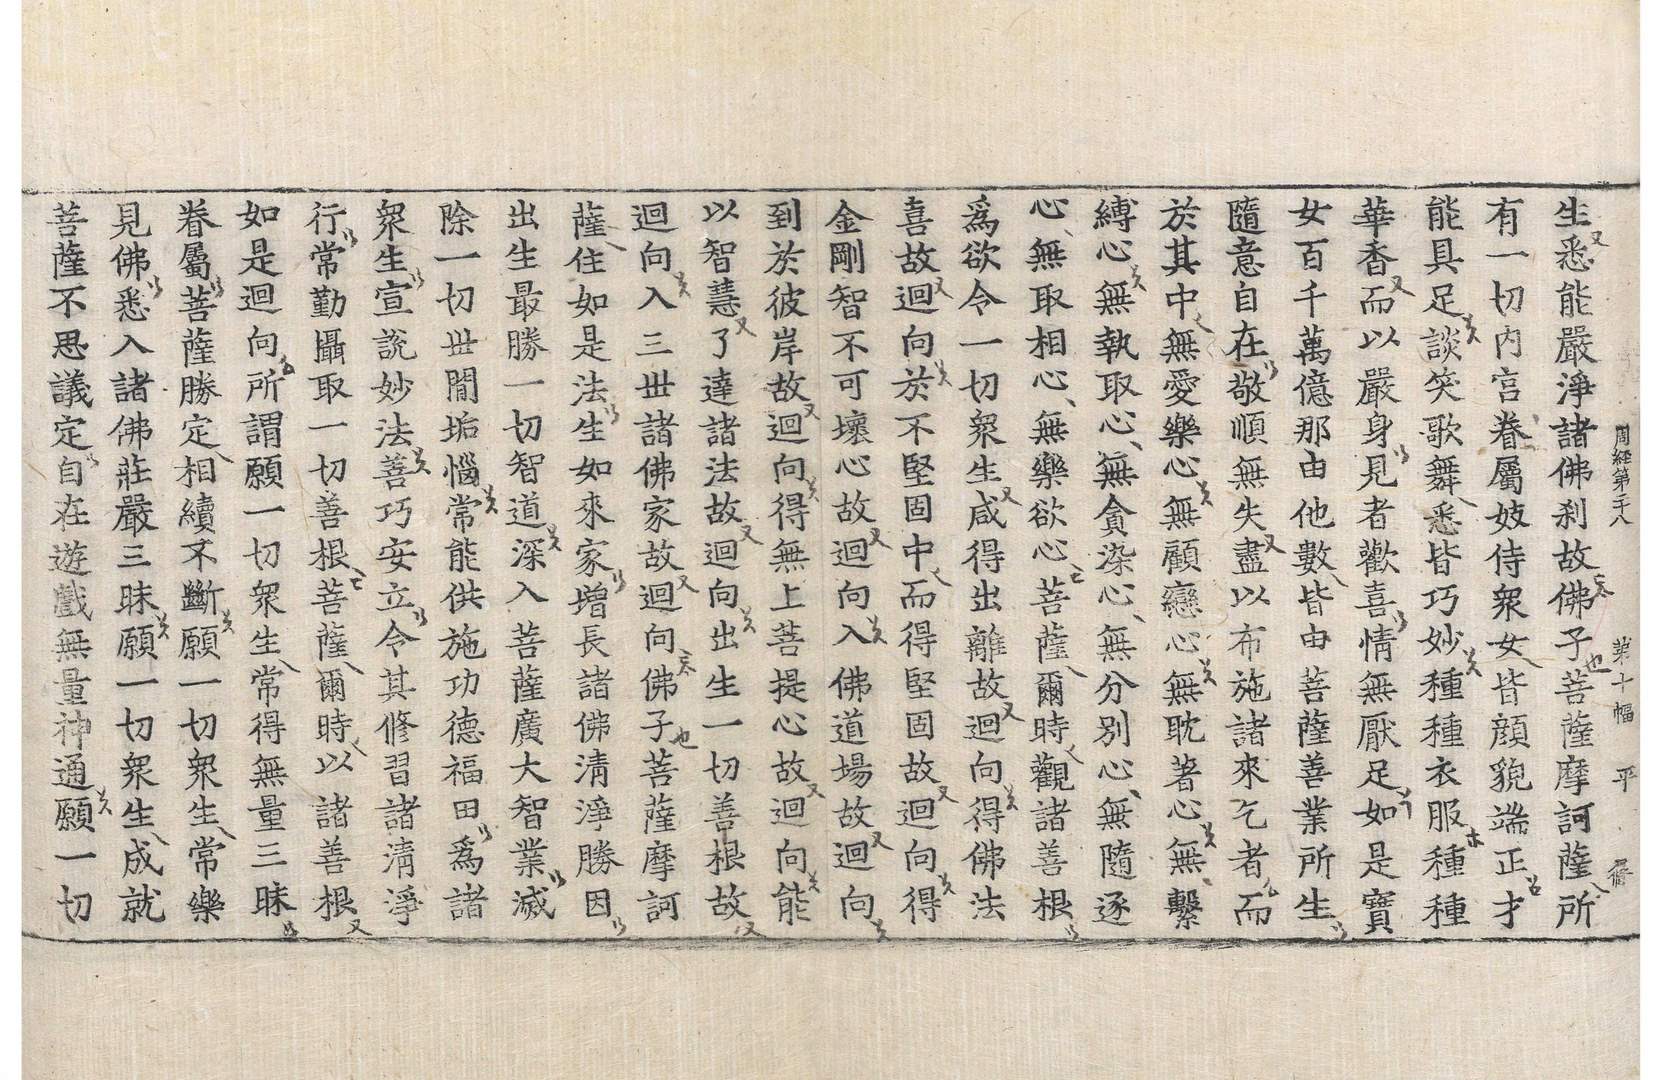 周經第二十八 第十幅 平 脩
生悉能嚴淨諸佛刹故佛子菩薩摩訶薩所
有一切内宮眷屬妓侍衆女皆顔貌端正才
能具足談笑歌舞悉皆巧妙種種衣服種種
華香而以嚴身見者歡喜情無厭足如是寶
女百千萬億那由他數皆由菩薩善業所生
隨意自在敬順無失盡以布施諸來乞者而
於其中無愛樂心無顧戀心無耽著心無繫
縛心無執取心無貪染心無分別心無隨逐
心無取相心無樂欲心菩薩爾時觀諸善根
爲欲令一切衆生咸得出離故迴向得佛法
喜故迴向於不堅固中而得堅固故迴向得
金剛智不可壞心故迴向入佛道場故迴向
到於彼岸故迴向得無上菩提心故迴向能
以智慧了達諸法故迴向出生一切善根故
迴向入三世諸佛家故迴向佛子菩薩摩訶
薩住如是法生如來家增長諸佛清淨勝因
出生最勝一切智道深入菩薩廣大智業滅
除一切世間垢惱常能供施功德福田爲諸
衆生宣説妙法善巧安立令其修習諸清淨
行常勤攝取一切善根菩薩爾時以諸善根
如是迴向所謂願一切衆生常得無量三昧
眷屬菩薩勝定相續不斷願一切衆生常樂
見佛悉入諸佛莊嚴三昧願一切衆生成就
菩薩不思議定自在遊戲無量神通願一切